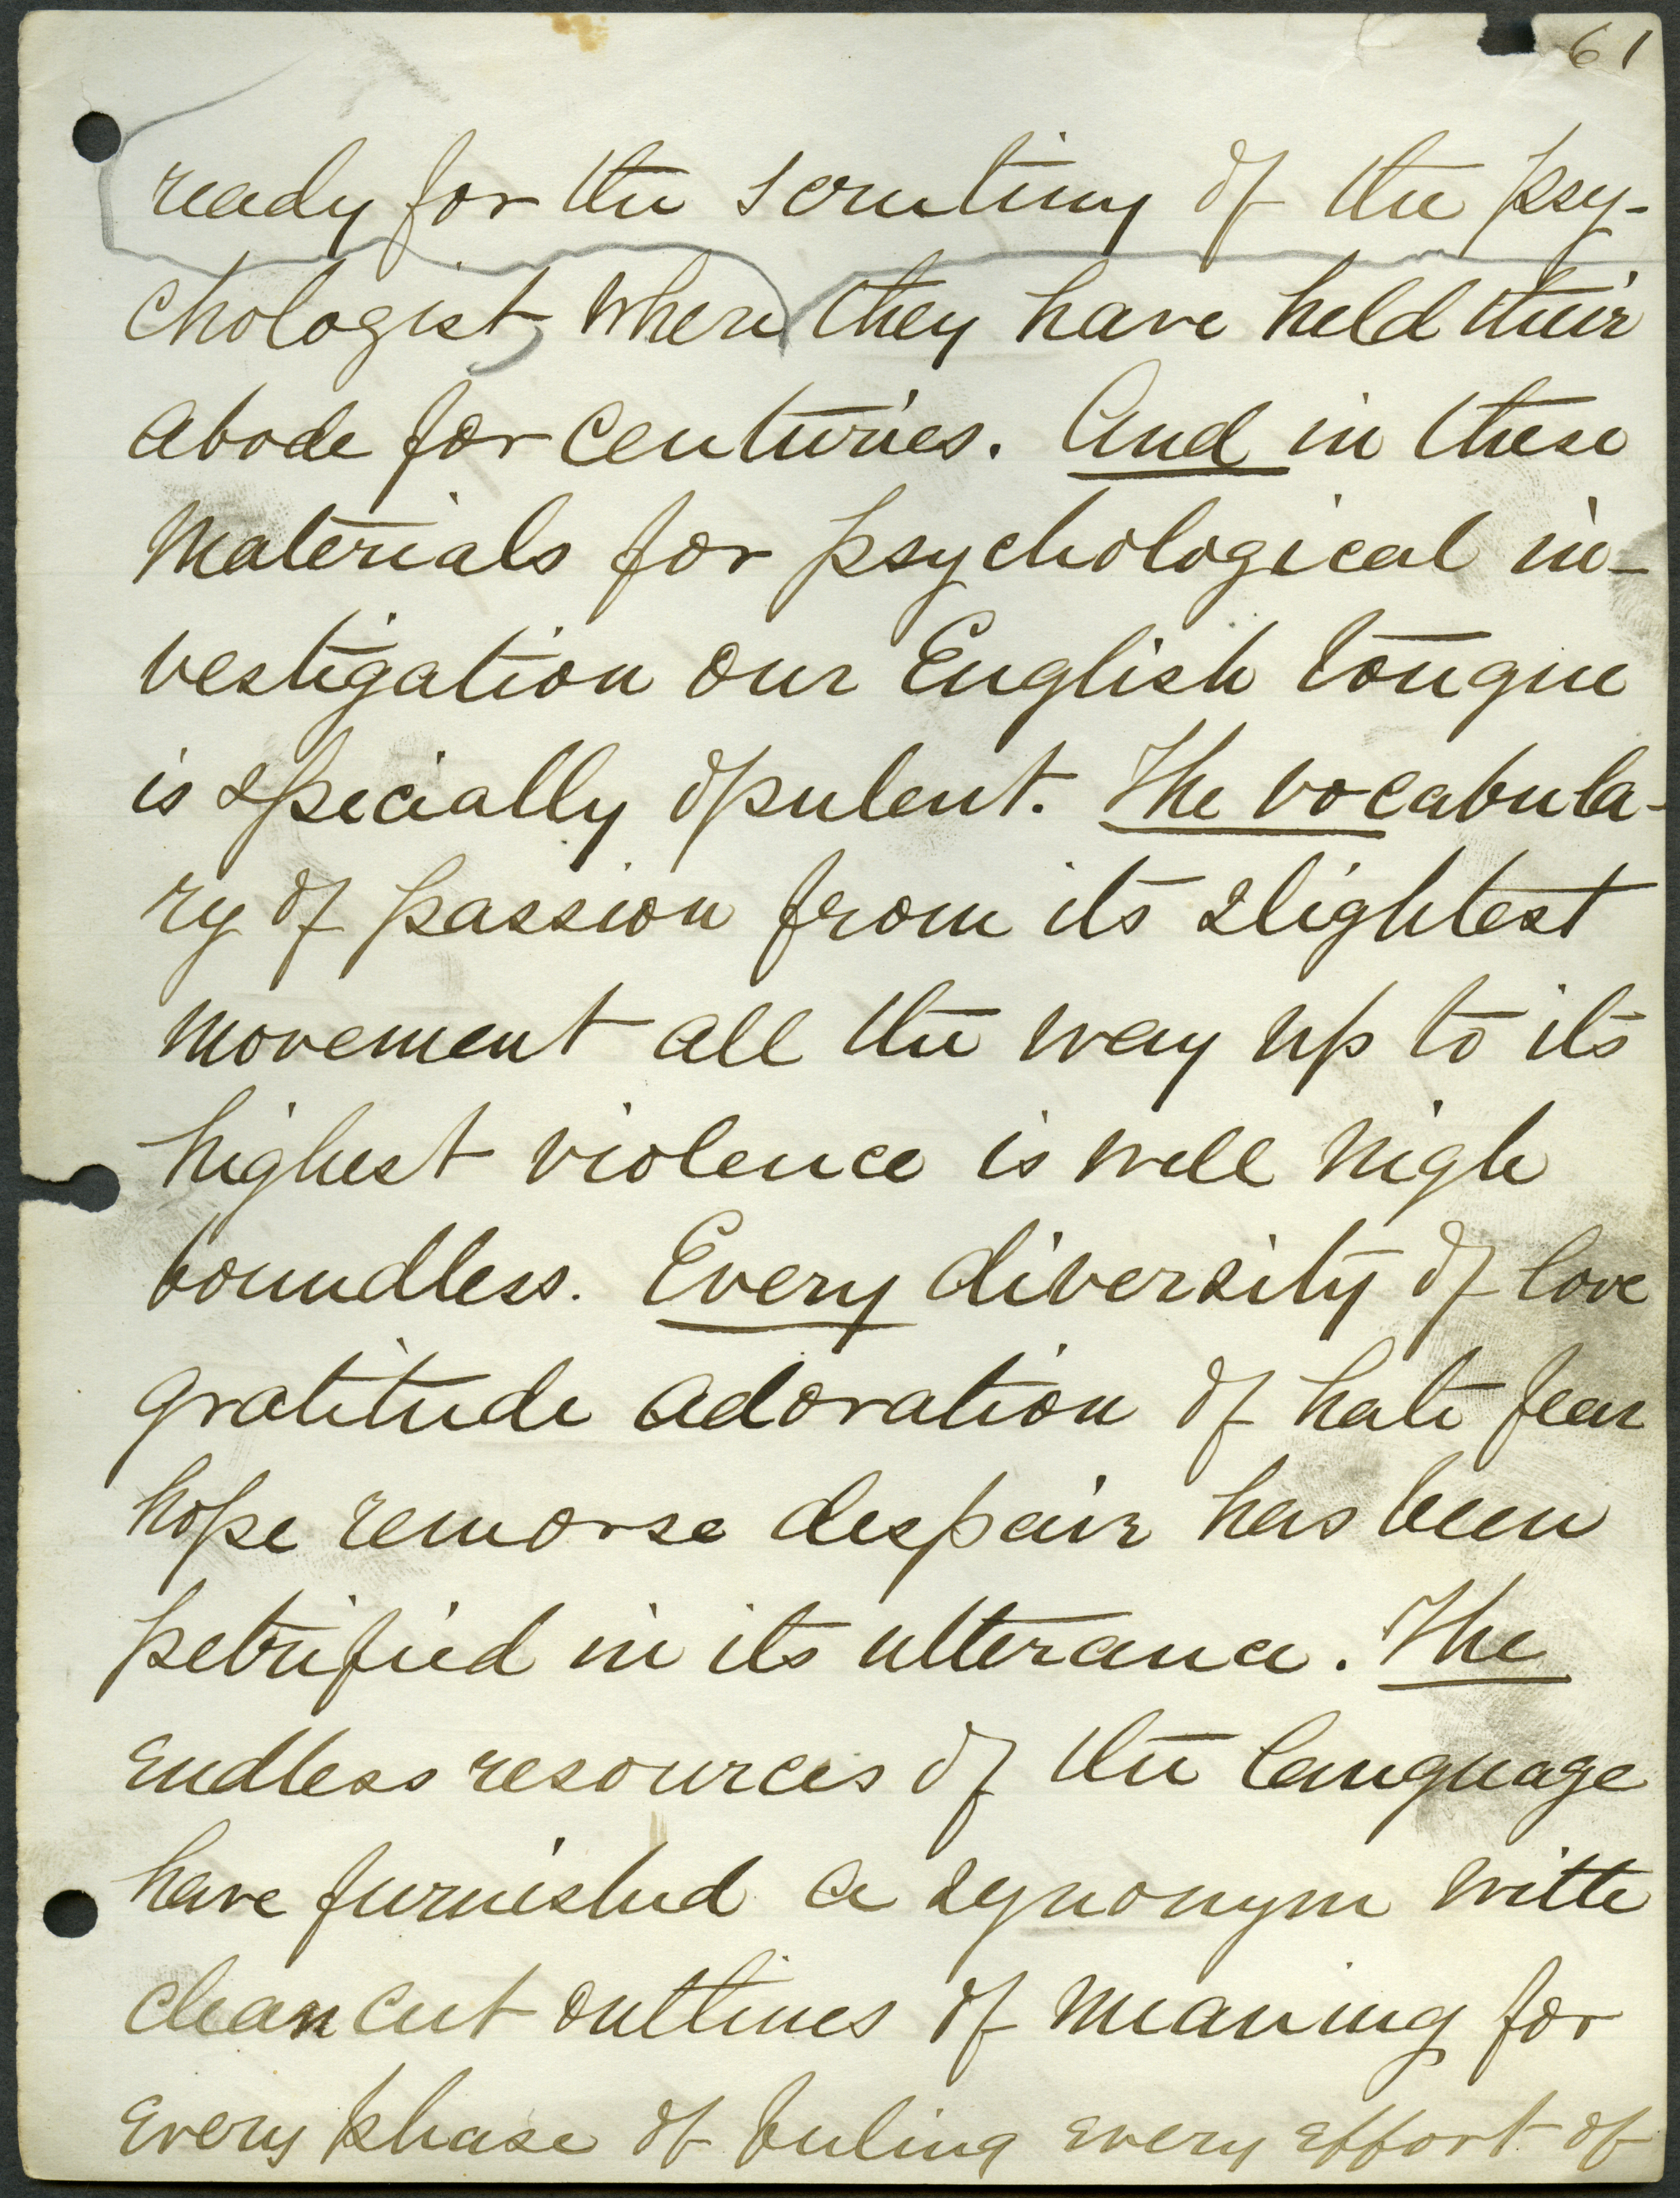 61
ready for the scrutiny of the psy-
chologist, where they have held their
abode for centuries. And in these
materials for psychological in-
vestigation our English tongue
is specially opulent. The vocabula-
ry of passion from its slightest
movement all the way up to its
highest violence is well nigh
boundless. Every diversity of love
gratitude adoration of hate fear
hope remorse despair has been
petrified in its utterance. The
endless resources of the language
have furnished a synonym with
clean cut outlines of meaning for
every phase of feeling every effort of